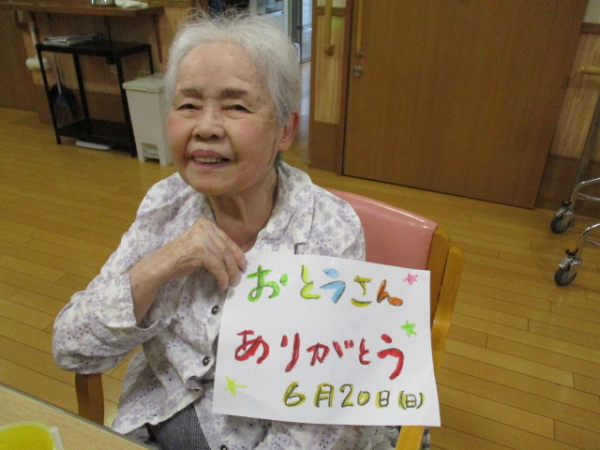 おとうさん
ありがとう
6月20日(日)